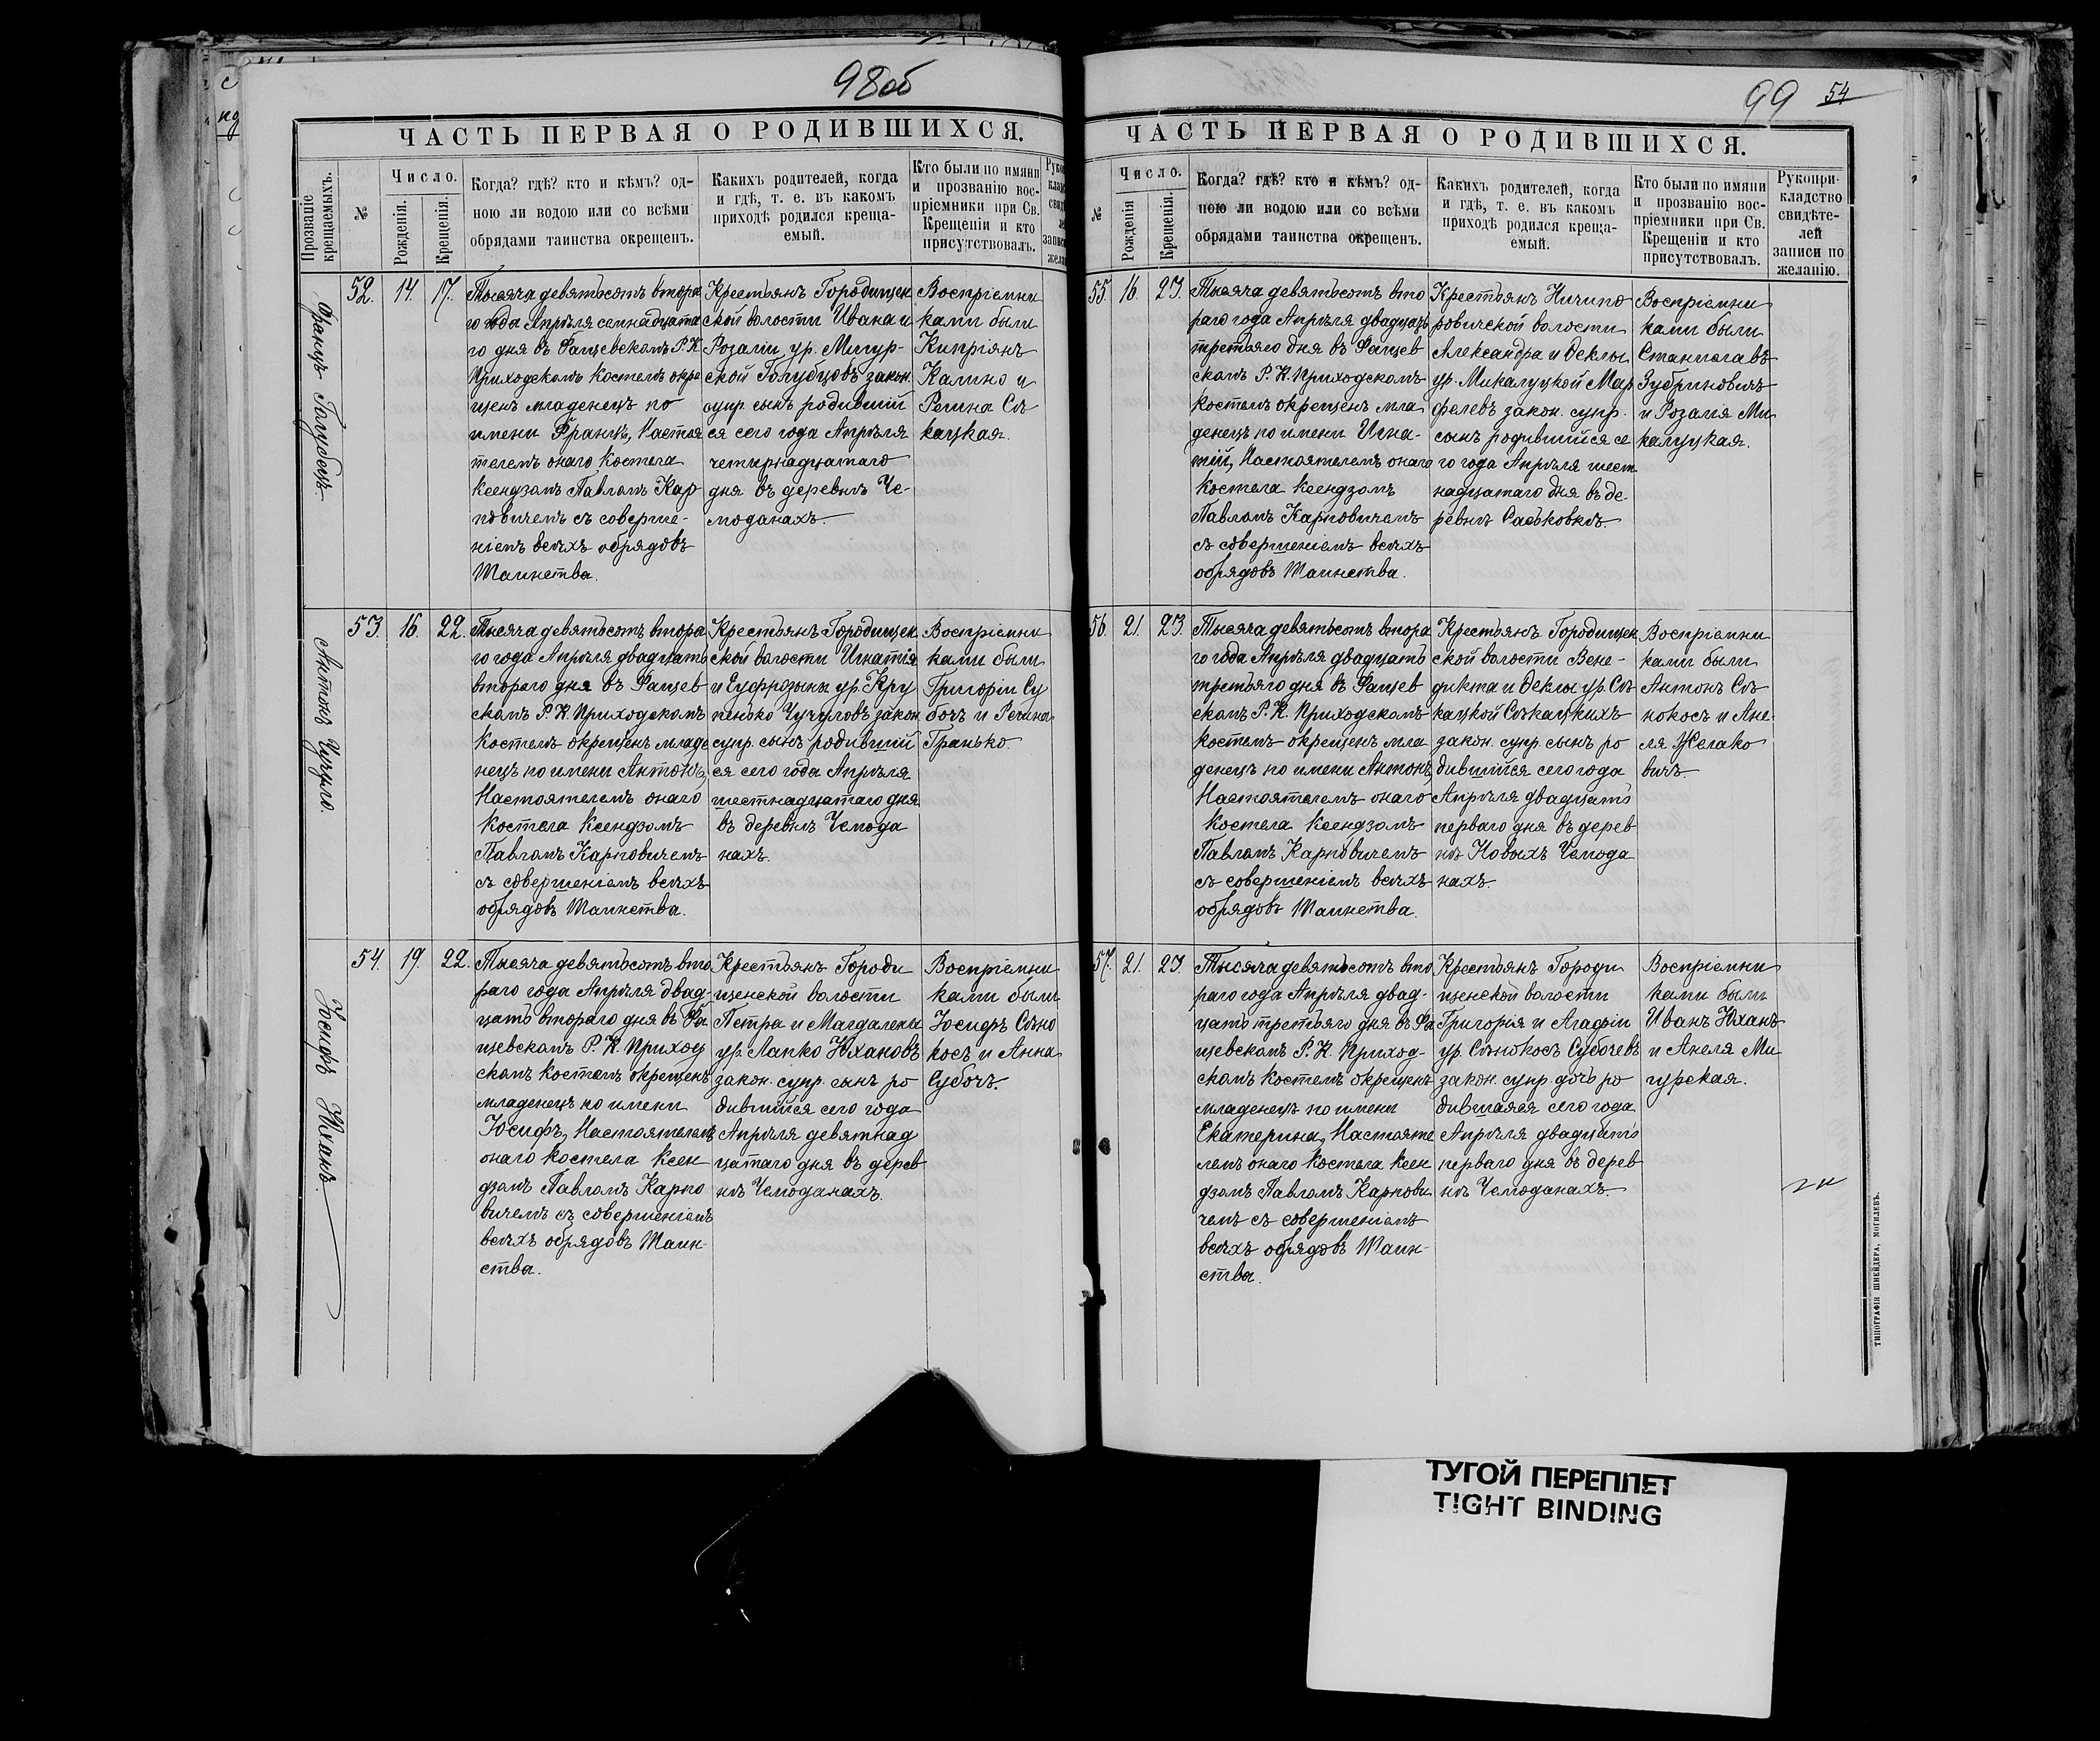 98об
ЧАСТЬ ПЕРВАЯ О РОДИВШИХСЯ.
Прозваніе крещаемыхъ.
№
Число.
Рожденія.
Крещенія.
Когда? гдѣ? кто и кѣмъ? од-
ною ли водою или со всѣми
обрядами таинства окрещенъ.
Какихъ родителей, когда
и гдѣ, т. е. въ какомъ
приходѣ родился креща-
емый.
Кто были по имяни
и прозванію вос-
пріемники при Св.
Крещеніи и кто
присутствовалъ.
Францъ Голубецъ.
52.
14.
17.
Тысяча девятьсотъ втора
го года Апрѣля семнадцата
го дня въ Фащевскомъ Р. К.
Приходскомъ Костелѣ окре
щенъ младенецъ по
имени Францъ, Настоя
телемъ онаго Костела
Ксендзомъ Павломъ Кар
повичемъ съ соверше-
ніемъ всѣхъ обрядовъ
Таинства.
Крестьянъ Городищен
ской волости Ивана и
Розаліи ур. Мигур-
ской Голубцовъ закон.
супр. сынъ родившій
ся сего года Апрѣля
четырнадцатаго
дня въ деревнѣ Че-
моданахъ.
Воспріемни
ками были
Кипріянъ
Калино и
Регина Сѣ
кацкая.
Антонъ Чучуло.
53.
16.
22.
Тысяча девятьсотъ втора
го года Апрѣля двадцать
втораго дня въ Фащев
скомъ Р. К. Приходскомъ
Костелѣ окрещенъ младе
нецъ по имени Антонъ,
Настоятелемъ онаго
Костела Ксендзомъ
Павломъ Карповичемъ
съ совершеніемъ всѣхъ
обрядовъ Таинства.
Крестьянъ Городищен
ской волости Игнатія
и Еуфрозыны ур. Кру
пенько Чучуловъ закон.
супр. сынъ родившій
ся сего года Апрѣля
шестнадцатаго дня
въ деревнѣ Чемода
нахъ.
Воспріемни
ками были
Григорій Су
бочъ и Регина
Гранько.
Іосифъ Юханъ.
54.
19.
22.
Тысяча девятьсотъ вто
раго года Апрѣля двад-
цать втораго дня въ Фа
щевскомъ Р. К. Приход
скомъ Костелѣ окрещенъ
младенецъ по имени
Іосифъ, Настоятелемъ
онаго Костела Ксен
дзомъ Павломъ Карпо
вичемъ съ совершеніемъ
всѣхъ обрядовъ Таин-
ства.
Крестьянъ Городи
щенской волости
Петра и Магдалены
ур. Лапко Юхановъ
закон. супр. сынъ ро
дившійся сего года
Апрѣля девятнад
цатаго дня въ дерев
нѣ Чемоданахъ.
Воспріемни
ками были
Іосифъ Сѣно
косъ и Анна
Субочъ.
99 54
ЧАСТЬ ПЕРВАЯ О РОДИВШИХСЯ.
№
Число.
Рожденія
Крещенія.
Когда? гдѣ? кто и кѣмъ? од-
ною ли водою или со всѣми
обрядами таинства окрещенъ.
Какихъ родителей, когда
и гдѣ, т. е. въ какомъ
приходѣ родился креща-
емый.
Кто были по имяни
и прозванію вос-
пріемники при Св.
Крещеніи и кто
присутствовалъ.
Рукопри-
кладство
свидѣте-
лей
записи по
желанію.
55.
16.
23.
Тысяча девятьсотъ вто
раго года Апрѣля двадцать
третьяго дня въ Фащев
скомъ Р. К. Приходскомъ
Костелѣ окрещенъ мла
денецъ по имени Игна-
тій, Настоятелемъ онаго
Костела Ксендзомъ
Павломъ Карповичемъ
съ совершеніемъ всѣхъ
обрядовъ Таинства.
Крестьянъ Ничипо
ровичской волости
Александра и Ѳеклы
ур. Микалуцкой Мар
фелевъ закон. супр.
сынъ родившійся се
го года Апрѣля шест
надцатаго дня въ де
ревнѣ Саськовкѣ.
Воспріемни
ками были
Станиславъ
Зубриновичъ
и Розалія Ми
калуцкая.
56.
21.
23.
Тысяча девятьсотъ втора
го года Апрѣля двадцать
третьяго дня въ Фащев
скомъ Р. К. Приходскомъ
Костелѣ окрещенъ мла
денецъ по имени Антонъ,
Настоятелемъ онаго
Костела Ксендзомъ
Павломъ Карповичемъ
съ совершеніемъ всѣхъ
обрядовъ Таинства.
Крестьянъ Городищен
ской волости Вене-
дикта и Ѳеклы ур. Сѣ
кацкой Сѣкацкихъ
закон. супр. сынъ ро
дившійся сего года
Апрѣля двадцать
перваго дня въ дерев
нѣ Новыхъ Чемода
нахъ.
Воспріемни
ками были
Антонъ Сѣ
нокосъ и Ане
ля Желако
вичъ.
57.
21.
23.
Тысяча девятьсотъ вто
раго года Апрѣля двад-
цать третьяго дня въ Фа
щевскомъ Р. К. Приход-
скомъ Костелѣ окрещенъ
младенецъ по имени
Екатерина, Настояте
лемъ онаго Костела Ксен
дзомъ Павломъ Карпови
чемъ съ совершеніемъ
всѣхъ обрядовъ Таин-
ства.
Крестьянъ Городи
щенской волости
Григорія и Агафіи
ур. Сѣнокосъ Субочевъ
закон. супр. дочь ро
дившаяся сего года
Апрѣля двадцать
перваго дня въ дерев
нѣ Чемоданахъ.
Воспріемни
ками были
Иванъ Юханъ
и Анеля Ми
гурская.
ТИПОГРАФІЯ ШНЕЙДЕРА, МОГИЛЕВЪ.
ТУГОЙ ПЕРЕПЛЕТ
TIGHT BINDING